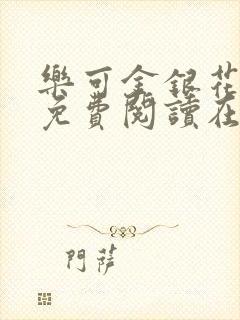 樂可金銀花
免費閱讀在
門薩